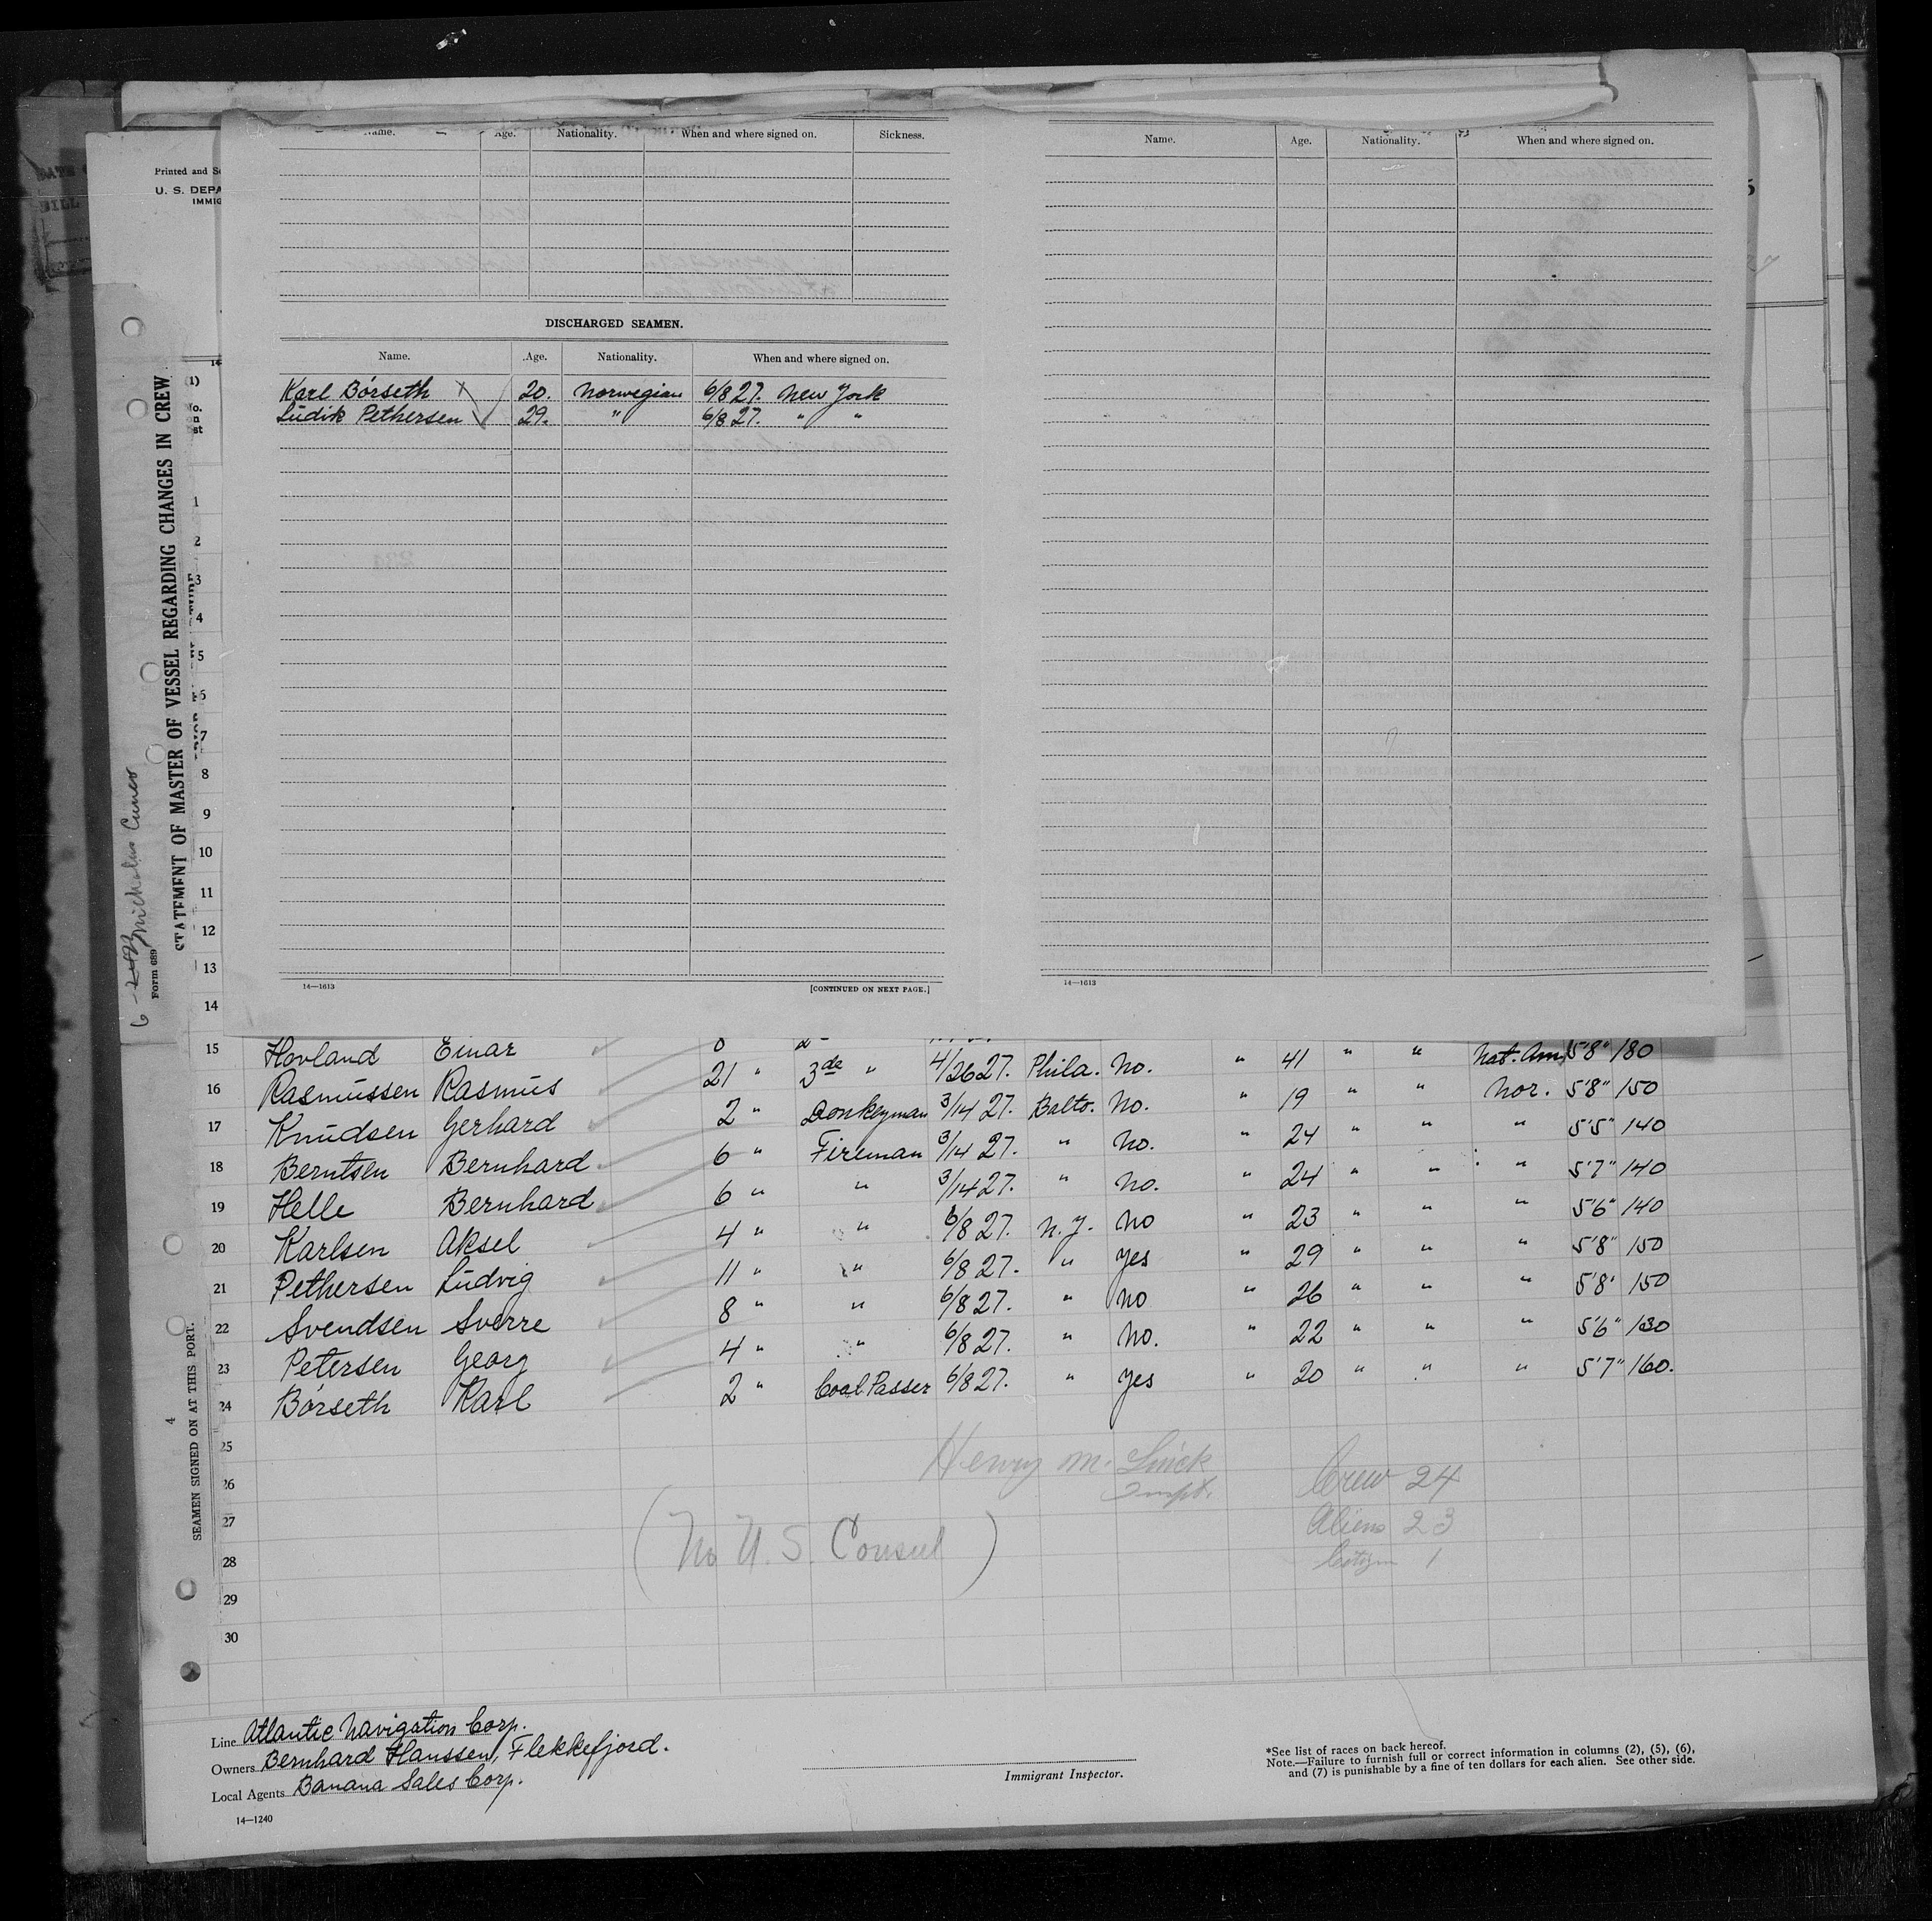 Printed and
U. S. DEPA
IMMIG
Name. Age. Nationality. When and where signed on. Sickness.
DISCHARGED SEAMEN.
Name. Age. Nationality. When and where signed on.
Karl Börseth 20. Norwegian 6/8 27. New York
Ludik Pethersen 29. " 6/8 27. " "
14—1613 [CONTINUED ON NEXT PAGE.]
Name. Age. Nationality. When and where signed on.
14—1613
STATEMENT OF MASTER OF VESSEL REGARDING CHANGES IN CREW
Form 689
SEAMEN SIGNED ON AT THIS PORT.
4
1
2
3
4
5
6
7
8
9
10
11
12
13
14
15 Hovland Einar
16 Rasmussen Rasmus 21 " 3de " 4/26 27. Phila. No. " 41 " " Nat. Am. 5'8" 180
17 Knudsen Gerhard 2 " Donkeyman 3/14 27. Balto. No. " 19 " " Nor. 5'8" 150
18 Berntsen Bernhard 6 " Fireman 3/14 27. " No. " 24 " " " 5'5" 140
19 Helle Bernhard 6 " " 3/14 27. " No. " 24 " " " 5'7" 140
20 Karlsen Aksel 4 " " 6/8 27. N.Y. No " 23 " " " 5'6" 140
21 Pethersen Ludvig 11 " " 6/8 27. " Yes " 29 " " " 5'8" 150
22 Svendsen Sverre 8 " " 6/8 27. " No " 26 " " " 5'8" 150
23 Petersen Georg 4 " " 6/8 27. " No. " 22 " " " 5'6" 130
24 Börseth Karl 2 " Coal Passer 6/8 27. " Yes " 20 " " " 5'7" 160.
25
26
27
28
29
30
Henry M.
Inspt.
(No U. S. Consul)
Crew 24
Aliens 23
Citizen 1
Line Atlantic Navigation Corp.
Owners Bernhard Hanssen, Flekkefjord.
Local Agents Banana Sales Corp.
14—1240
Immigrant Inspector.
*See list of races on back hereof.
Note.—Failure to furnish full or correct information in columns (2), (5), (6),
and (7) is punishable by a fine of ten dollars for each alien. See other side.